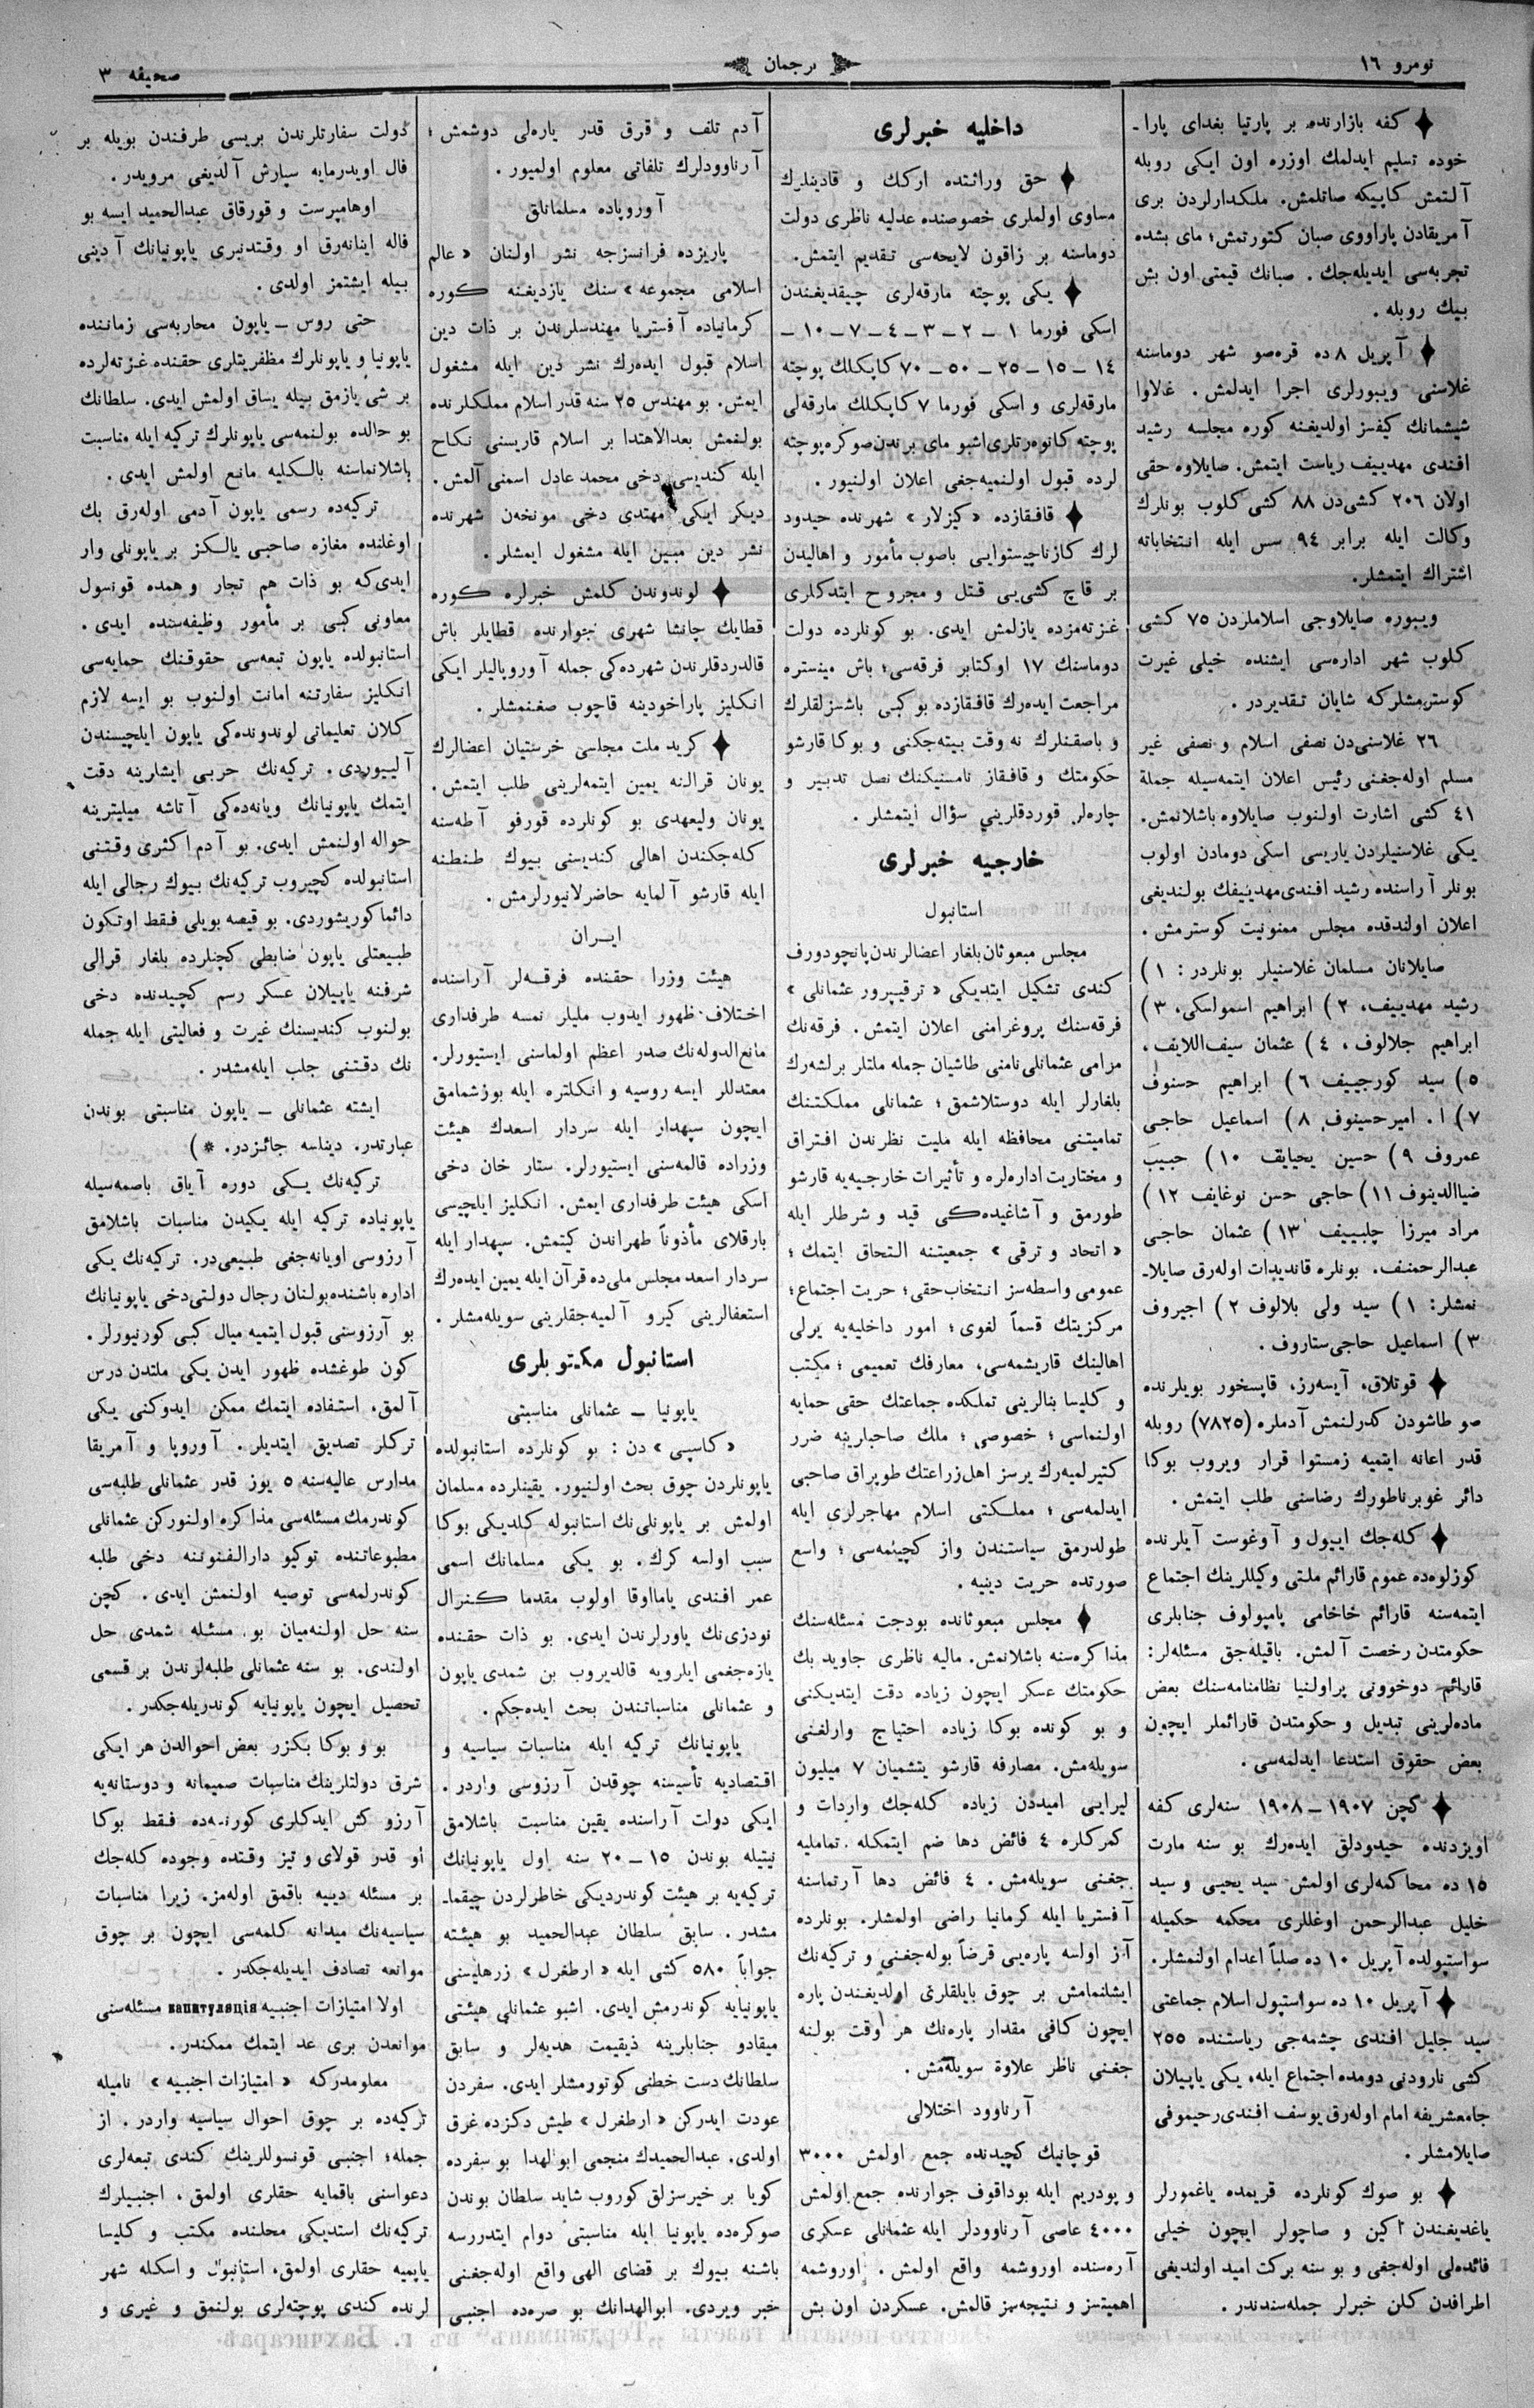 نومرو ١٦
ترجمان
صحيفه ٣
كفه بازارنده بر پارتيا بغدای پارا-
خوده تسليم ايدلمك اوزره اون ايكی روبله
آلتمش كاپيكه صاتلمش. ملكدارلردن بری
آمريقادن پاراووی صپان كتورتمش؛ مای بشده
تجربه‌سی ايديله‌جك. صپانك قيمتی اون بش
بيك روبله.
آپريل ٨ ده قره‌صو شهر دوماسنه
غلاسنی ويبورلری اجرا ايدلمش. غالاوا
شيشمانك كيفسز اولديغنه كوره مجلسه رشيد
افندی مهدييف رياست ايتمش. صايلاوه حقی
اولان ٢٠٦ كشی‌دن ٨٨ كشی كلوب بونلرك
وكالت ايله برابر ٩٤ سس ايله انتخاباته
اشتراك ايتمشلر.
ويبوره صايلاوجی اسلاملردن ٧٥ كشی
كلوب شهر اداره‌سی ايشنده خيلی غيرت
كوسترمشلركه شايان تقديردر.
٢٦ غلاسنی‌دن نصفی اسلام و نصفی غير
مسلم اوله‌جغنی رئيس اعلان ايتمه‌سيله جملة
٤١ كشی اشارت اولنوب صايلاوه باشلانمش.
يكی غلاسنيلردن ياريسی اسكی دومادن اولوب
بونلر آراسنده رشيد افندی مهدييفك بولنديغی
اعلان اولندقده مجلس ممنونيت كوسترمش.
صايلانان مسلمان غلاسنيلر بونلردر: ١)
رشيد مهدييف، ٢) ابراهيم اسمولسكی، ٣)
ابراهيم جلالوف، ٤) عثمان سيف‌اللايف،
٥) سيد كورجييف ٦) ابراهيم حسنوف
٧) ا. اميرحسينوف ٨) اسماعيل حاجی
عمروف ٩) حسين يحيايف ١٠) حبيب
ضياالدينوف ١١) حاجی حسن نوغايف ١٢)
مراد ميرزا چلبييف ١٣) عثمان حاجی
عبدالرحمنف. بونلره قانديدات اوله‌رق صايلا-
نمشلر: ١) سيد ولی بلالوف ٢) اجيروف
٣) اسماعيل حاجی‌ستاروف.
قوتلاق، آيسه‌رز، قاپسخور بويلرنده
صو طاشودن كدرلنمش آدملره (٧٨٢٥) روبله
قدر اعانه ايتميه زمستوا قرار ويروب بوكا
دائر غوبرناطورك رضاسنی طلب ايتمش.
كله‌جك اييول و آوغوست آيلرنده
كوزلوه‌ده عموم قارائم ملتی وكيللرينك اجتماع
ايتمه‌سنه قارائم خاخامی پامپولوف جنابلری
حكومتدن رخصت آلمش. باقيله‌جق مسئله‌لر:
قارائم دوخوونی پراولنيا نظامنامه‌سنك بعض
ماده‌لرينی تبديل و حكومتدن قارائملر ايچون
بعض حقوق استدعا ايدلمه‌سی.
كچن ١٩٠٧ – ١٩٠٨ سنه‌لری كفه
اويزدنده حيدودلق ايده‌رك بو سنه مارت
١٥ ده محاكمه‌لری اولمش سيد يحيی و سيد
خليل عبدالرحمن اوغللری محكمه حكميله
سواستپولده آپريل ١٠ ده صلباً اعدام اولنمشلر.
آپريل ١٠ ده سواستپول اسلام جماعتی
سيد جليل افندی چشمه‌جی رياستنده ٢٥٥
كشی نارودنی دومده اجتماع ايله، يكی ياپيلان
جامعشريفه امام اوله‌رق يوسف افندی‌رحيموفی
صايلامشلر.
بو صوك كونلرده قريمده ياغمورلر
ياغديغندن اكين و صاچولر ايچون خيلی
فائده‌لی اوله‌جغی و بو سنه بركت اميد اولنديغی
اطرافدن كلن خبرلر جمله‌سندندر.
داخليه خبرلری
حق وراثتده اركك و قادينلرك
مساوی اولملری خصوصنده عدليه ناظری دولت
دوماسنه بر زاقون لايحه‌سی تقديم ايتمش.
يكی پوچته مارقه‌لری چيقديغندن
اسكی فورما ١ – ٢ – ٣ – ٤ – ٧ – ١٠ –
١٤ – ١٥ – ٢٥ – ٥٠ – ٧٠ كاپكلك پوچته
مارقه‌لری و اسكی فورما ٧ كاپكلك مارقه‌لی
پوچته كانوه‌رتلری اشبو مای برندن صوكره پوچته
لرده قبول اولنميه‌جغی اعلان اولنيور.
قافقازده «كيزلار» شهرنده حيدود
لرك كازناچيستوايی باصوب مأمور و اهاليدن
بر قاچ كشی‌يی قتل و مجروح ايتدكلری
غزته‌مزده يازلمش ايدی. بو كونلرده دولت
دوماسنك ١٧ اوكتابر فرقه‌سی؛ باش مينستره
مراجعت ايده‌رك قافقازده بو كبی باشسزلقلرك
و باصقنلرك نه وقت بيته‌جكنی و بوكا قارشو
حكومتك و قافقاز نامسنيكنك نصل تدبير و
چاره‌لر قوردقلرينی سؤال ايتمشلر.
خارجيه خبرلری
استانبول
مجلس مبعوثان بلغار اعضالرندن پانچودورف
كندی تشكيل ايتديكی «ترقيپرور عثمانلی»
فرقه‌سنك پروغرامنی اعلان ايتمش. فرقه‌نك
مرامی عثمانلی نامنی طاشيان جمله ملتلر برلشه‌رك
بلغارلر ايله دوستلاشمق؛ عثمانلی مملكتنك
تماميتنی محافظه ايله مليت نظرندن افتراق
و مختاريت اداره‌لره و تأثيرات خارجيه‌يه قارشو
طورمق و آشاغيده‌كی قيد و شرطلر ايله
«اتحاد و ترقی» جمعيتنه التحاق ايتمك؛
عمومی واسطه‌سز انتخاب حقی؛ حريت اجتماع؛
مركزيتك قسماً لغوی؛ امور داخليه‌يه يرلی
اهالينك قاريشمه‌سی، معارفك تعميمی؛ مكتب
و كليسا بنالرينی تملكده جماعتك حقی حمايه
اولنماسی؛ خصوصی؛ ملك صاحبارينه ضرر
كتيرلميه‌رك يرسز اهل زراعتك طوپراق صاحبی
ايدلمه‌سی؛ مملكتی اسلام مهاجرلری ايله
طولدرمق سياستندن واز كچيلمه‌سی؛ واسع
صورتده حريت دينيه.
مجلس مبعوثانده بودجت مسئله‌سنك
مذاكره‌سنه باشلانمش. ماليه ناظری جاويد بك
حكومتك عسكر ايچون زياده دقت ايتديكنی
و بو كونده بوكا زياده احتياج وارلغنی
سويله‌مش. مصارفه قارشو يتشميان ٧ ميليون
ليرايی اميددن زياده كله‌جك واردات و
كمركلره ٤ فائض دها ضم ايتمكله تمامليه
جغنی سويله‌مش. ٤ فائض دها آرتماسنه
آفستريا ايله كرمانيا راضی اولمشلر. بونلرده
آز اولسه پاره‌يی قرضاً بوله‌جغنی و تركيه‌نك
ايشلنمامش بر چوق بايلقلری اولديغندن پاره
ايچون كافی مقدار پاره‌نك هر وقت بولنه
جغنی ناظر علاوة سويله‌مش.
آرناوود اختلالی
قوچانيك كچيدنده جمع اولمش ٣٠٠٠
و پودريم ايله بوداقوف جوارنده جمع اولمش
٤٠٠٠ عاصی آرناوودلر ايله عثمانلی عسكری
آره‌سنده اوروشمه واقع اولمش. اوروشمه
اهميتسز و نتيجه‌سز قالمش. عسكردن اون بش
آدم تلف و قرق قدر ياره‌لی دوشمش؛
آرناوودلرك تلفاتی معلوم اولميور.
آوروپاده مسلمانلق
پاريزده فرانسزجه نشر اولنان «عالم
اسلامی مجموعه» سنك يازديغنه كوره
كرمانياده آفستريا مهندسلرندن بر ذات دين
اسلام قبول ايده‌رك نشر دين ايله مشغول
ايمش. بو مهندس ٢٥ سنه قدر اسلام مملكلرنده
بولنمش بعدالاهتدا بر اسلام قاريسنی نكاح
ايله كنديسی دخی محمد عادل اسمنی آلمش.
ديكر ايكی مهتدی دخی مونخه‌ن شهرنده
نشر دين مبين ايله مشغول ايمشلر.
لوندوندن كلمش خبرلره كوره
قطايك چانشا شهری جوارنده قطايلر باش
قالدردقلرندن شهرده‌كی جمله آوروپاليلر ايكی
انكليز پاراخودينه قاچوب صغنمشلر.
كريد ملت مجلسی خرستيان اعضالرك
يونان قرالنه يمين ايتمه‌لرينی طلب ايتمش.
يونان وليعهدی بو كونلرده قورفو آطه‌سنه
كله‌جكندن اهالی كنديسنی بيوك طنطنه
ايله قارشو آلمايه حاضرلانيورلرمش.
ايران
هيئت وزرا حقنده فرقه‌لر آراسنده
اختلاف ظهور ايدوب مليلر نمسه طرفداری
مانع‌الدوله‌نك صدر اعظم اولماسنی ايستيورلر.
معتدللر ايسه روسيه و انكلتره ايله بوزشمامق
ايچون سپهدار ايله سردار اسعدك هيئت
وزراده قالمه‌سنی ايستيورلر. ستار خان دخی
اسكی هيئت طرفداری ايمش. انكليز ايلچيسی
بارقلای مأذوناً طهراندن كيتمش. سپهدار ايله
سردار اسعد مجلس ملی‌ده قرآن ايله يمين ايده‌رك
استعفالرينی كيرو آلميه‌جقلرينی سويله‌مشلر.
استانبول مكتوبلری
ياپونيا – عثمانلی مناسبتی
«كاسپی» دن: بو كونلرده استانبولده
ياپونلردن چوق بحث اولنيور. يقينلرده مسلمان
اولمش بر ياپونلی‌نك استانبوله كلديكی بوكا
سبب اولسه كرك. بو يكی مسلمانك اسمی
عمر افندی ياماوقا اولوب مقدما كنرال
نودزی‌نك ياورلرندن ايدی. بو ذات حقنده
يازه‌جغمی ايلرويه قالديروب بن شمدی ياپون
و عثمانلی مناسباتندن بحث ايده‌جكم.
ياپونيانك تركيه ايله مناسبات سياسيه و
اقتصاديه تأسيسنه چوقدن آرزوسی واردر.
ايكی دولت آراسنده يقين مناسبت باشلامق
نيتيله بوندن ١٥ – ٢٠ سنه اول ياپونيانك
تركيه‌يه بر هيئت كوندرديكی خاطرلردن چيقما-
مشدر. سابق سلطان عبدالحميد بو هيئته
جواباً ٥٨٠ كشی ايله «ارطغرل» زرهليسنی
ياپونيايه كوندرمش ايدی. اشبو عثمانلی هيئتی
ميقادو جنابلرينه ذيقيمت هديه‌لر و سابق
سلطانك دست خطنی كوتورمشلر ايدی. سفردن
عودت ايدركن «ارطغرل» طيش دكزده غرق
اولدی. عبدالحميدك منجمی ابوالهدا بو سفرده
كويا بر خيرسزلق كوروب شايد سلطان بوندن
صوكره‌ده ياپونيا ايله مناسبتی دوام ايتدررسه
باشنه بيوك بر قضای الهی واقع اوله‌جغنی
خبر ويردی. ابوالهدانك بو صره‌ده اجنبی
دولت سفارتلرندن بريسی طرفندن بويله بر
فال اويدرمايه سپارش آلديغی مرويدر.
اوهامپرست و قورقاق عبدالحميد ايسه بو
فاله اينانه‌رق او وقتدنبری ياپونيانك آدينی
بيله ايشتمز اولدی.
حتی روس – ياپون محاربه‌سی زماننده
ياپونيا و ياپونلرك مظفريتلری حقنده غزته‌لرده
بر شی يازمق بيله يساق اولمش ايدی. سلطانك
بو حالده بولنمه‌سی ياپونلرك تركيه ايله مناسبت
باشلانماسنه بالكليه مانع اولمش ايدی.
تركيه‌ده رسمی ياپون آدمی اوله‌رق بك
اوغلنده مغازه صاحبی يالكز بر ياپونلی وار
ايدی‌كه بو ذات هم تجار و همده قونسول
معاونی كبی بر مأمور وظيفه‌سنده ايدی.
استانبولده ياپون تبعه‌سی حقوقنك حمايه‌سی
انكليز سفارتنه امانت اولنوب بو ايسه لازم
كلان تعليماتی لوندونده‌كی ياپون ايلچيسندن
آليوردی. تركيه‌نك حربی ايشلرينه دقت
ايتمك ياپونيانك ويانه‌ده‌كی آتاشه ميليترينه
حواله اولنمش ايدی. بو آدم اكثری وقتنی
استانبولده كچيروب تركيه‌نك بيوك رجالی ايله
دائما كوريشوردی. بو قيصه بويلی فقط اوتكون
طبيعتلی ياپون ضابطی كچنلرده بلغار قرالی
شرفنه ياپيلان عسكر رسم كچيدنده دخی
بولنوب كنديسنك غيرت و فعاليتی ايله جمله
نك دقتنی جلب ايله‌مشدر.
ايشته عثمانلی – ياپون مناسبتی بوندن
عبارتدر. دينلسه جائزدر. *)
تركيه‌نك يكی دوره آياق باصمه‌سيله
ياپونياده تركيه ايله يكيدن مناسبات باشلامق
آرزوسی اويانه‌جغی طبيعی‌در. تركيه‌نك يكی
اداره باشنده بولنان رجال دولتی دخی ياپونيانك
بو آرزوسنی قبول ايتميه ميال كبی كورنيورلر.
كون طوغشده ظهور ايدن يكی ملتدن درس
آلمق، استفاده ايتمك ممكن ايدوكنی يكی
تركلر تصديق ايتديلر. آوروپا و آمريقا
مدارس عاليه‌سنه ٥ يوز قدر عثمانلی طلبه‌سی
كوندرمك مسئله‌سی مذاكره اولنوركن عثمانلی
مطبوعاتنده توكيو دارالفنوننه دخی طلبه
كوندرلمه‌سی توصيه اولنمش ايدی. كچن
سنه حل اولنه‌ميان بو مسئله شمدی حل
اولندی. بو سنه عثمانلی طلبه‌لرندن بر قسمی
تحصيل ايچون ياپونيايه كوندريله‌جكدر.
بو و بوكا بكزر بعض احوالدن هر ايكی
شرق دولتلرينك مناسبات صميمانه و دوستانه‌يه
آرزو كش ايدكلری كورنسه‌ده فقط بوكا
او قدر قولای و تيز وقتده وجوده كله‌جك
بر مسئله دييه باقمق اوله‌مز. زيرا مناسبات
سياسيه‌نك ميدانه كلمه‌سی ايچون بر چوق
موانعه تصادف ايديله‌جكدر.
اولا امتيازات اجنبيه капитуляція مسئله‌سنی
موانعدن بری عد ايتمك ممكندر.
معلومدركه «امتيازات اجنبيه» ناميله
تركيه‌ده بر چوق احوال سياسيه واردر. از
جمله؛ اجنبی قونسوللرينك كندی تبعه‌لری
دعواسنی باقمايه حقلری اولمق، اجنبيلرك
تركيه‌نك استديكی محلنده مكتب و كليسا
ياپميه حقلری اولمق، استانبول و اسكله شهر
لرنده كندی پوچته‌لری بولنمق و غيری و